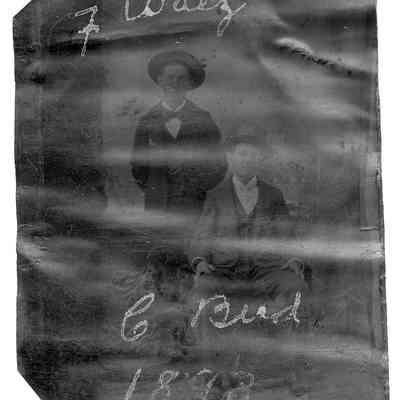 F Waez
C Bud
1898